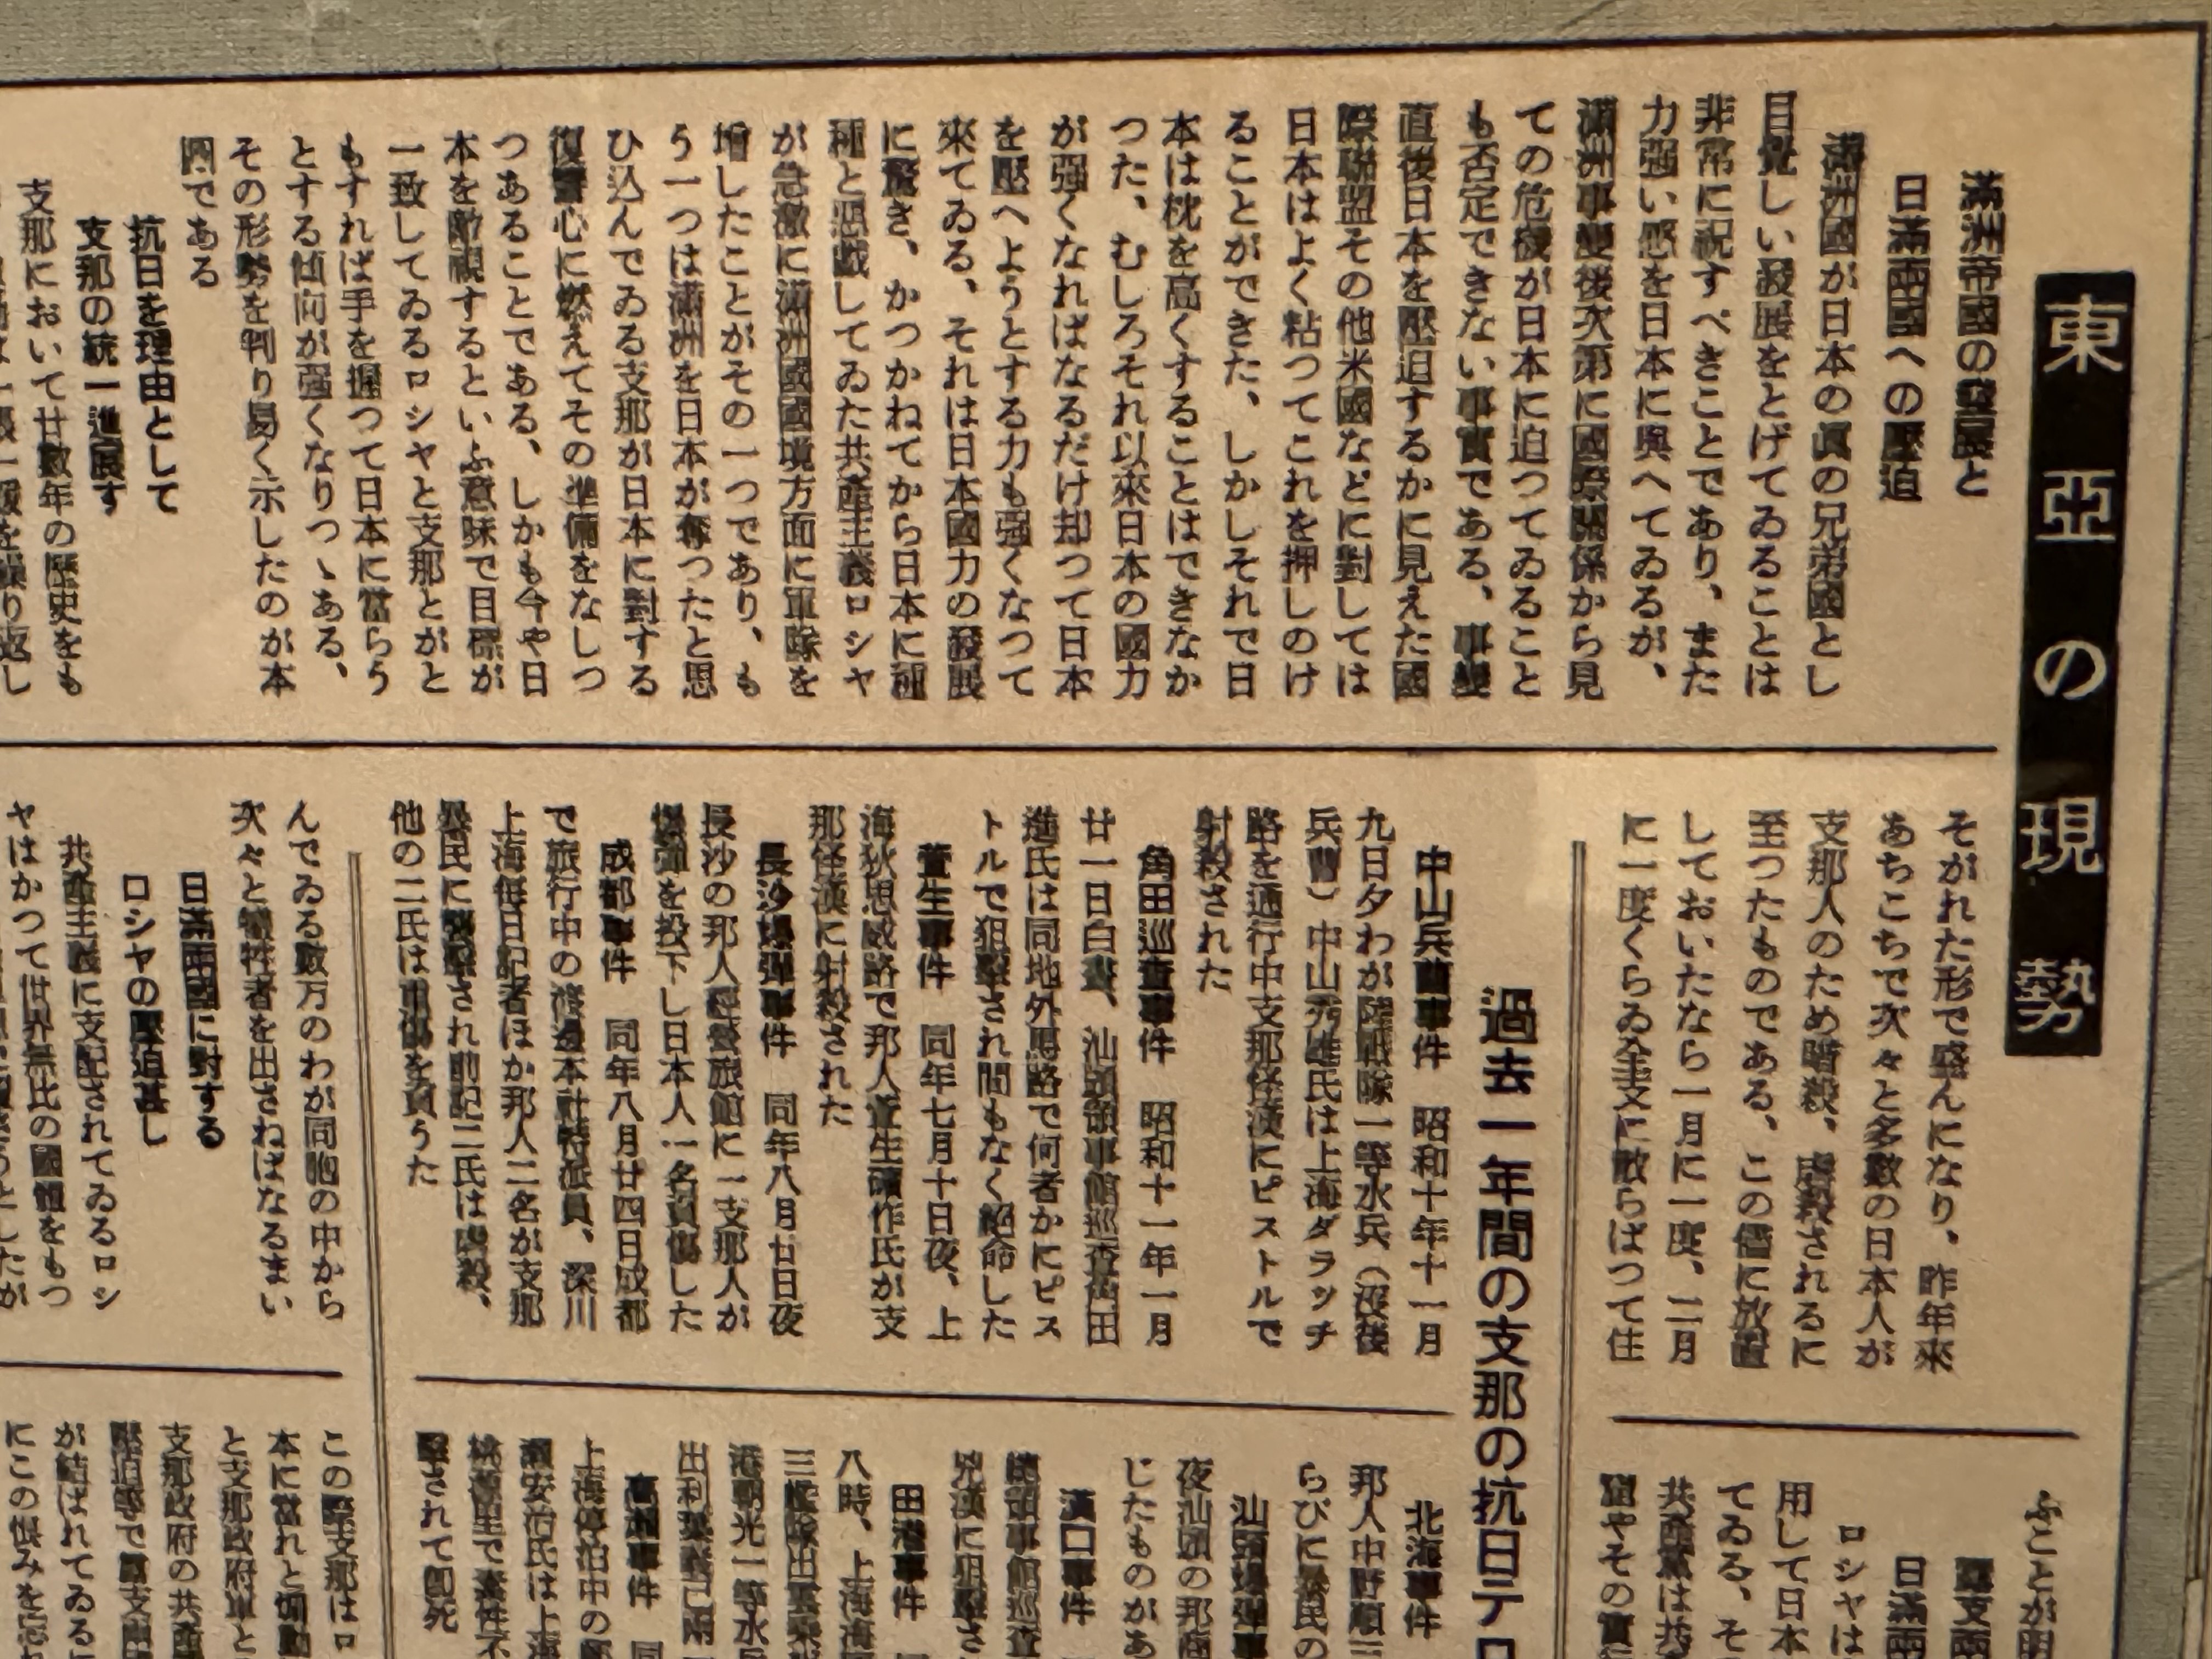 東亞の現勢
滿洲帝國の發展と
日滿兩國への壓迫
滿洲國が日本の眞の兄弟國とし
目覺しい發展をとげてゐることは
非常に祝すべきことであり、また
力强い感を日本に與へてゐるが、
滿洲事變後次第に國際關係から見
ての危機が日本に迫つてゐること
も否定できない事實である、事變
直後日本を壓迫するかに見えた國
際聯盟その他米國などに對しては
日本はよく粘つてこれを押しのけ
ることができた、しかしそれで日
本は枕を高くすることはできなか
つた、むしろそれ以來日本の國力
が强くなればなるだけ却つて日本
を壓へようとする力も强くなつて
來てゐる、それは日本國力の發展
に驚き、かつかねてから日本に種
種と惡戲してゐた共產主義ロシヤ
が急激に滿洲國國境方面に軍隊を
增したことがその一つであり、も
う一つは滿洲を日本が奪つたと思
ひ込んでゐる支那が日本に對する
復讐心に燃えてその準備をなしつ
つあることである、しかも今や日
本を敵視するといふ意味で目標が
一致してゐるロシヤと支那とがと
もすれば手を握つて日本に當らう
とする傾向が强くなりつゝある、
その形勢を判り易く示したのが本
圖である
抗日を理由として
支那の統一進展す
支那において廿數年の歷史をも
それた形で盛んになり、昨年來
あちこちで次々と多數の日本人が
支那人のため暗殺、虐殺されるに
至つたものである、この儘に放置
しておいたなら一月に一度、二月
に一度くらゐ全支に散らばつて住
過去一年間の支那の抗日テロ
中山兵曹事件　昭和十年十一月
九日夕わが陸戰隊一等水兵（沒後
兵曹）中山秀雄氏は上海ダラッチ
路を通行中支那怪漢にピストルで
射殺された
角田巡査事件　昭和十一年一月
廿一日白晝、汕頭領事館巡査角田
進氏は同地外馬路で何者かにピス
トルで狙擊され間もなく絕命した
萱生事件　同年七月十日夜、上
海狄思威路で邦人萱生鑛作氏が支
那怪漢に射殺された
長沙爆彈事件　同年八月廿日夜
長沙の邦人經營旅館に一支那人が
爆彈を投下し日本人一名負傷した
成都事件　同年八月廿四日成都
で旅行中の渡邊本社特派員、深川
上海每日記者ほか邦人二名が支那
暴民に襲擊され前記二氏は虐殺、
他の二氏は重傷を負うた
んでゐる數万のわが同胞の中から
次々と犧牲者を出さねばなるまい
日滿兩國に對する
ロシヤの壓迫甚し
共產主義に支配されてゐるロシ
ふことが出
日滿兩
ロシヤは
用して日本
てゐる、そ
北海事件
邦人中野順三
らびに暴民の
汕頭爆彈事
夜汕頭の邦商
じたものがあ
漢口事件
領事館巡査
兇漢に狙擊さ
田港事件
八時、上海海
港朝光一等水兵
上海停泊中の
擊されて卽死
この際支那はロ